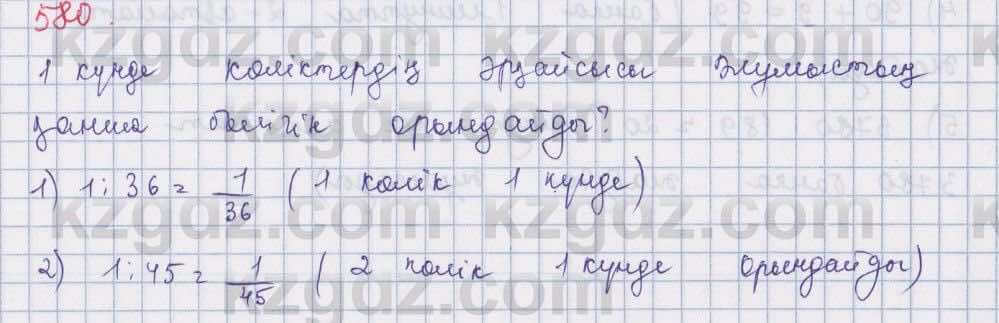 580.
1 күнде көліктердің әрқайсысы жұмыстың
қанша бөлігін орындайды?
1) 1 : 36 = 1/36 (1 көлік 1 күнде)
2) 1 : 45 = 1/45 (2 көлік 1 күнде орындайды)
kzgdz.com kzgdz.com
kzgdz.com kzgdz.com
kzgdz.com kzgdz.com